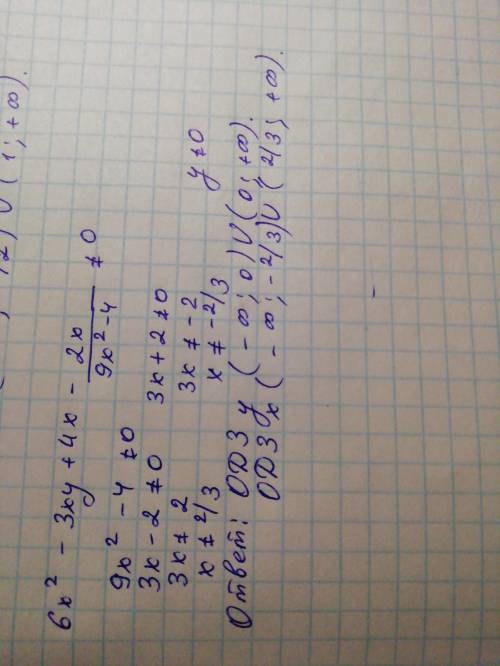 /2) U (1; +∞).
6x² - 3xy + 4x - 2x/9x²-4 ≠ 0
9x² - 4 ≠ 0
3x - 2 ≠ 0 3x + 2 ≠ 0
3x ≠ 2 3x ≠ -2
x ≠ 2/3 x ≠ -2/3 y ≠ 0
Ответ: ОДЗ y (-∞; 0) U (0; +∞).
ОДЗ x (-∞; -2/3) U (2/3; +∞).